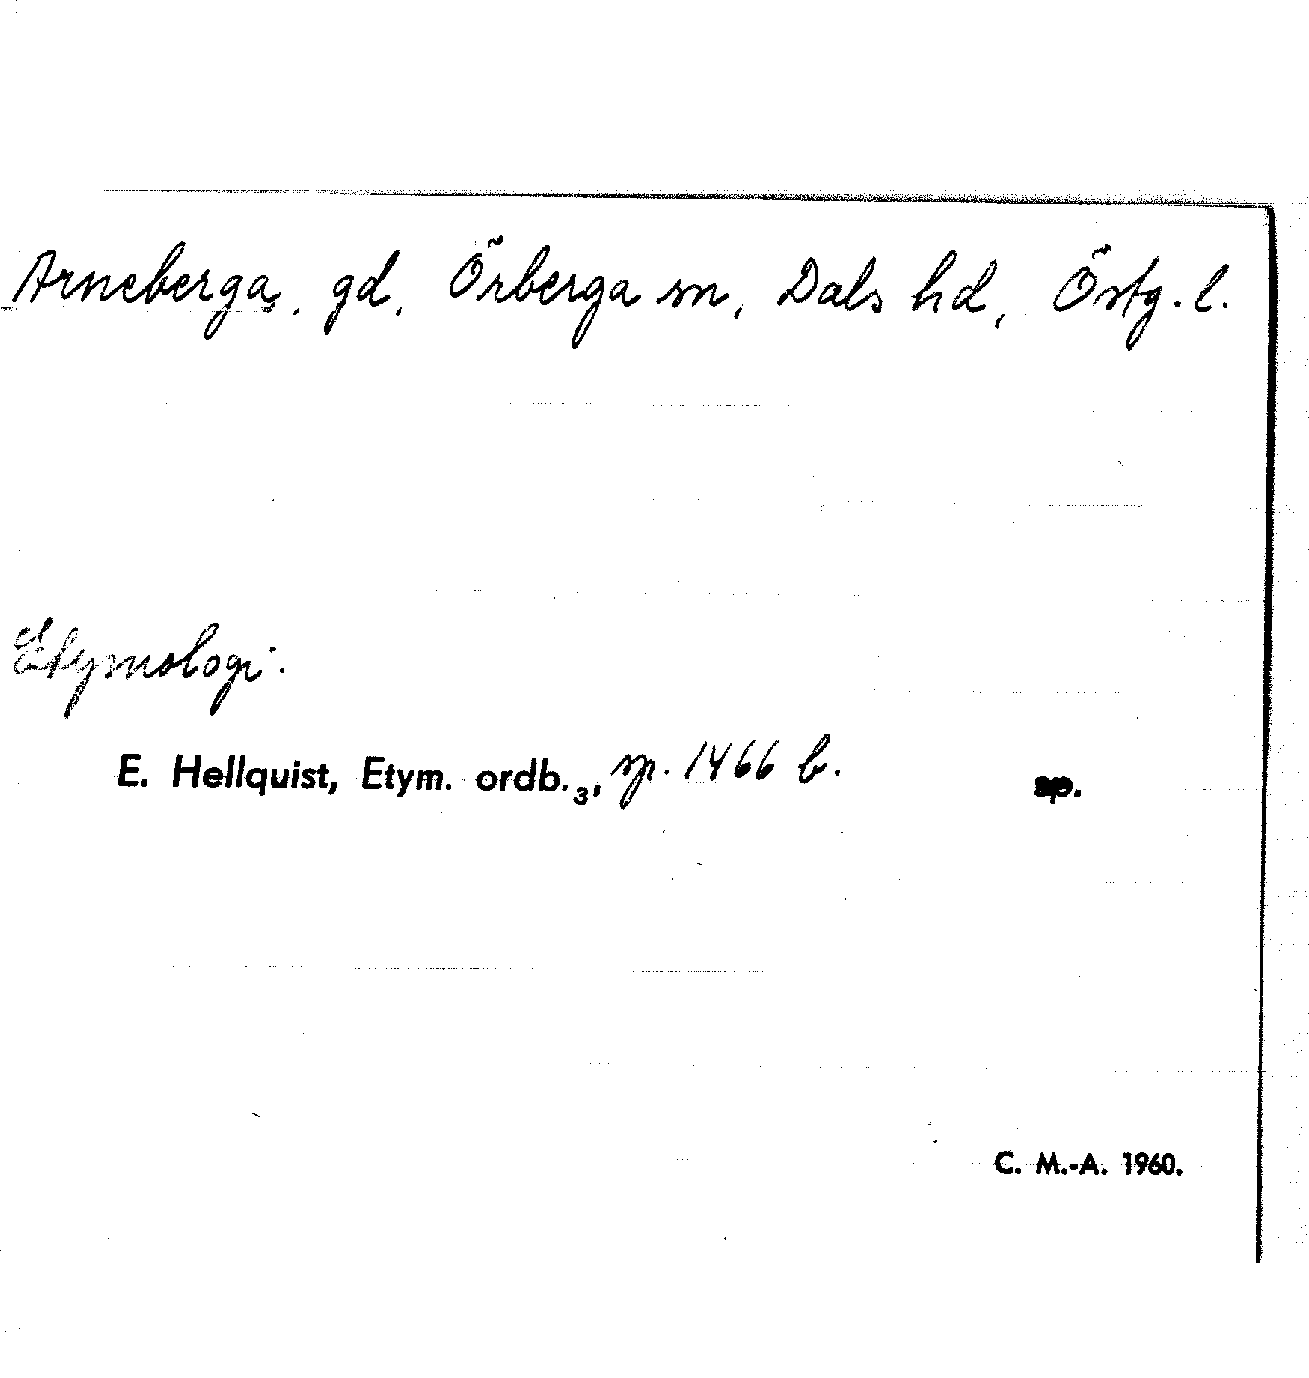 Arneberga, gd, Örberga sn, Dals hd, Östg. l.
Etymologi.
E. Hellquist, Etym. ordb.₃, sp. 1466 b. sp.
C. M.-A. 1960.